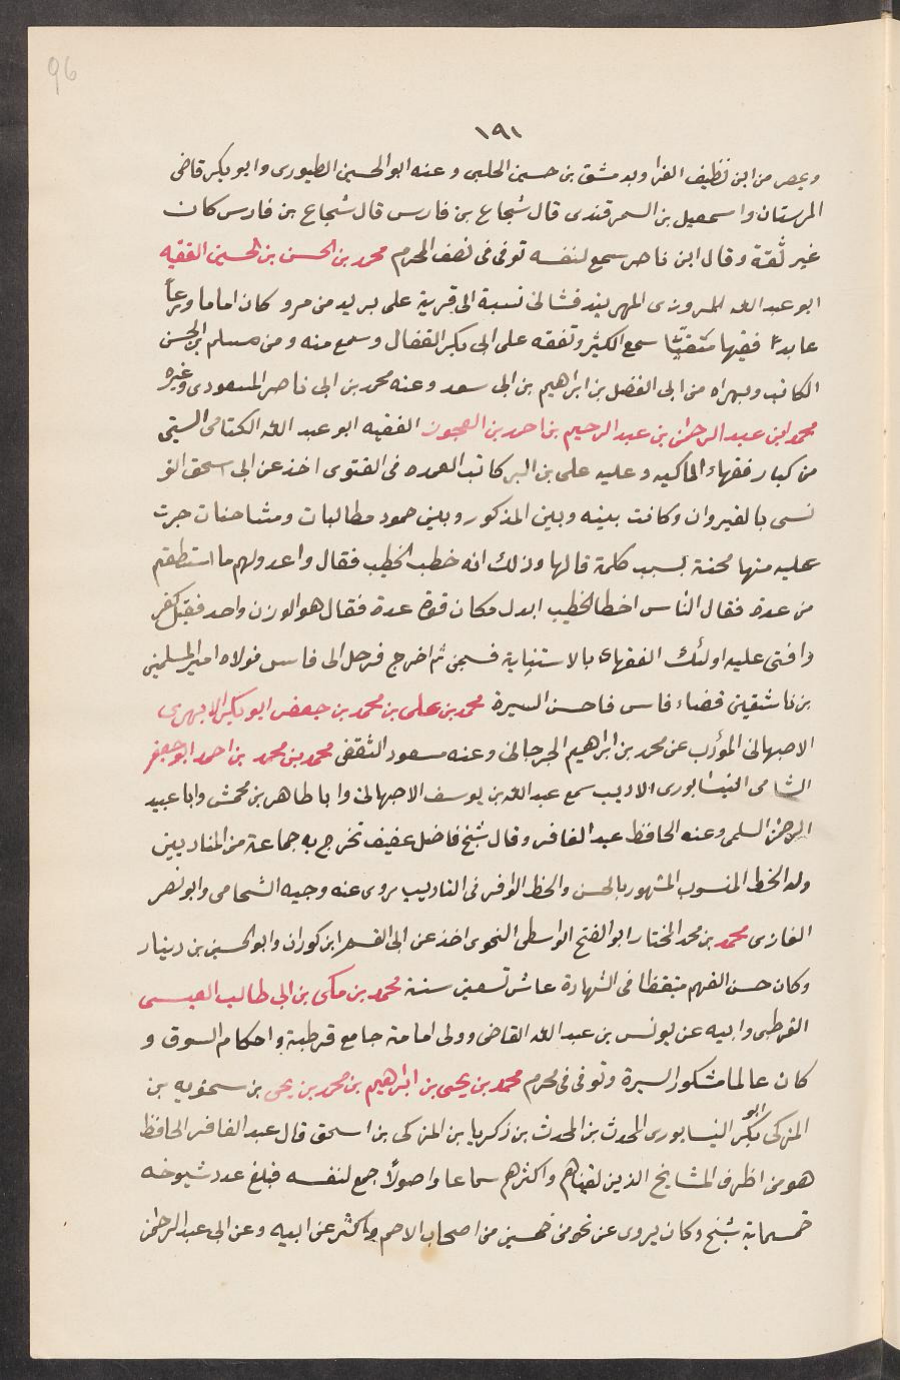 96
١٩١
وبمصر من ابن نظيف الفرا وبدمشق بن حسين الحلبى وعنه ابو الحسين الطيورى وابو بكر قاضى
المرستان واسمعيل بن السمرقندى قال شجاع بن فارس قال شجاع بن فارس كان
غير ثقة وقال ابن ناصر سمع لنفسه توفى فى نصف المحرم محمد بن الحسن بن الحسين الفقيه
ابو عبد الله المروزى المهربندقشائى نسبة الى قرية على بريد من مرو كان اماما ورعاً
عابداً فقيها متقيّا سمع الكثير وتفقه على ابى بكر القفال وسمع منه ومن مسلم بن الحسن
الكاتب وبهراه من ابى الفضل بن ابراهيم بن ابى سعد وعنه محمد بن ابى ناصر المسعودى وغيره
محمد ابن عبد الرحمن بن عبد الرحيم بن احمد بن العجوز الفقيه ابو عبد الله الكتامى السبتى
من كبار فقهاء المالكيه وعليه على بن البر كاتب العمده فى الفتوى اخذ عن ابى اسحق التو
نسى بالقيروان وكانت بينه وبين المذكور وبين حمود مطالبات ومشاحنات جرت
عليه منها محنة بسبب كلمة قالها وذلك انه خطب الخطيب فقال واعدولهم ما استطعتم
من عدة فقال الناس اخطا الخطيب ابدل مكان قوة عدة فقال هو الوزن واحد فقيل كفر
وافتى عليه اولئك الفقهاء بالاستتابة فسجن ثم اخرج فرحل الى فاس فولاه امير المسلمين
بن تاشفين قضاء فاس فاحسن السيرة محمد بن على بن محمد بن جعفر ابو بكر الابهرى
الاصبهانى المؤدب عن محمد بن ابراهيم الجرجانى وعنه مسعود الثقفى محمد بن محمد بن احمد ابو جعفر
الشامى النيسابورى الاديب سمع عبد الله بن يوسف الاصبهانى وابا طاهر بن محمش وابا عبيد
الرحمن السلمى وعنه الحافظ عبد الغافر وقال شيخ فاضل عفيف تخرج به جماعة من المتادبين
وله الخط المنسوب المشهور بالحسن والحظ الوافر فى التاديب يروى عنه وجيه الشحامى وابو نصر
الغازى محمد بن محمد المختار ابو الفتح الواسطى النحوى اخذ عن ابى القسم ابن كوران وابو الحسين بن دينار
وكان حسن الفهم متيقظا فى الشهادة عاش تسعين سنة محمد بن مكى بن ابى طالب العبسى
القرطبى وابيه عن يونس بن عبد الله القاضى وولى امامة جامع قرطبة واحكام السوق و
كان عالما مشكور السيرة وتوفى فى محرم محمد بن يحيى بن ابراهيم بن محمد بن يحيى بن سختويه بن
المزكى ابو بكر النيسابورى المحدث بن المحدث بن زكريا بن المزكى بن اسحق قال عبد الغافر الحافظ
هو من اظرف المشايخ الذين لقيناهم واكثرهم سماعا واصولاً جمع لنفسه فبلغ عدد شيوخه
خمسماية شيخ وكان يروى عن نحو من خمسين من اصحاب الاصم واكثر عن ابيه وعن ابى عبد الرحمن